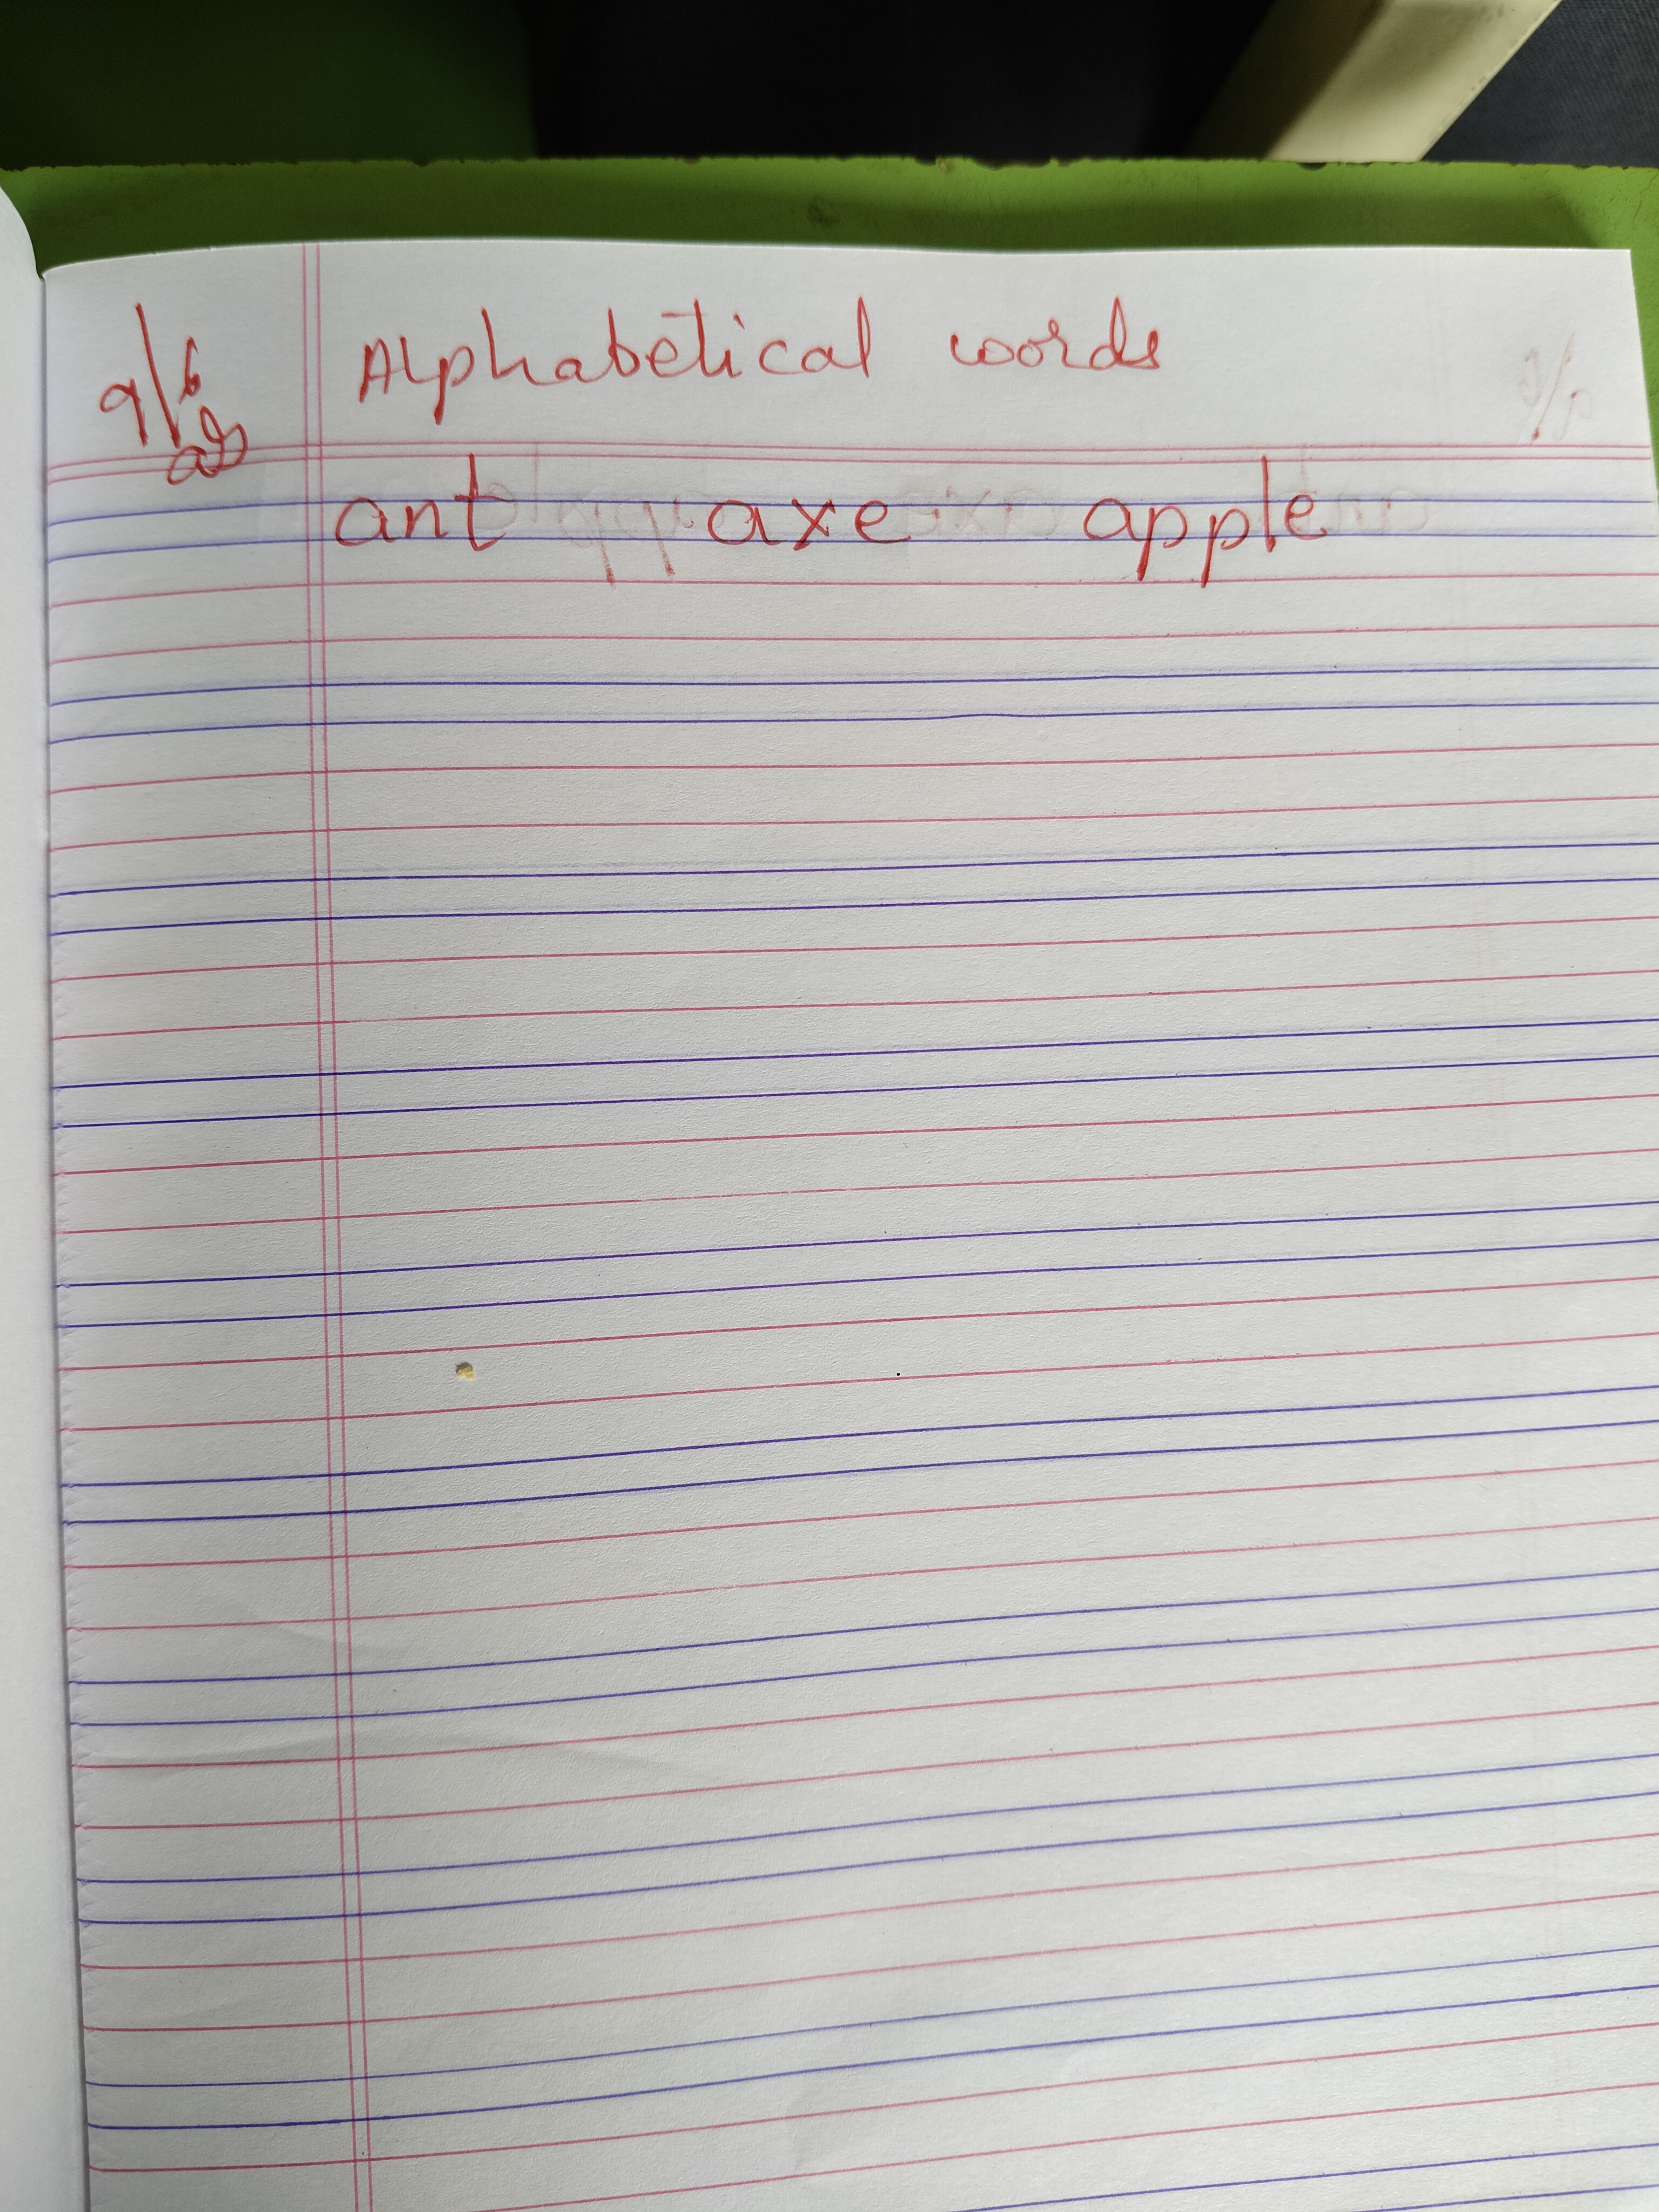 9/6 Alphabetical words
ant axe apple